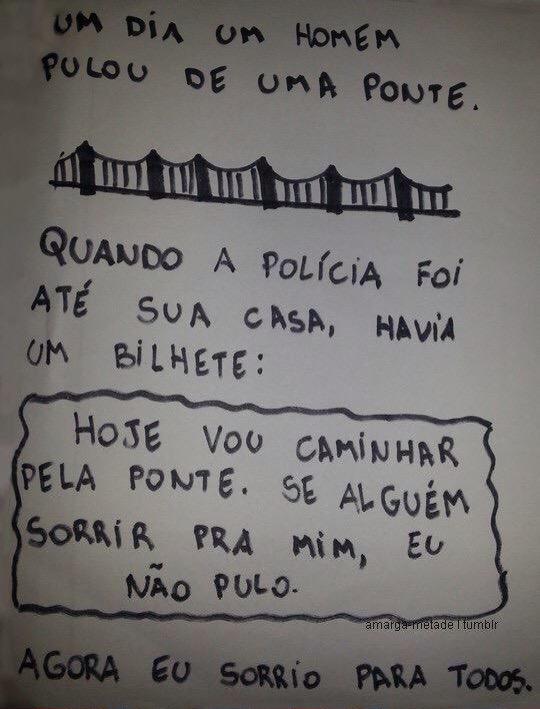 UM DIA UM HOMEM
PULOU DE UMA PONTE.
QUANDO A POLÍCIA FOI
ATÉ SUA CASA, HAVIA
UM BILHETE:
HOJE VOU CAMINHAR
PELA PONTE. SE ALGUÉM
SORRIR PRA MIM, EU
NÃO PULO.
amarga-metade | tumblr
AGORA EU SORRIO PARA TODOS.